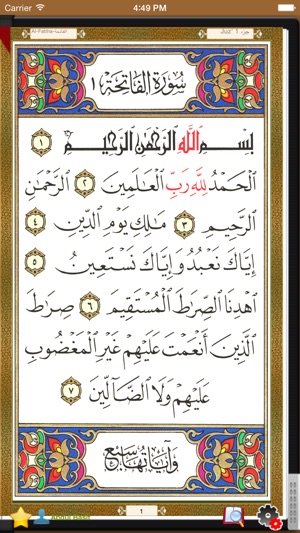 Carrier 4:49 PM
Al-Fatiha-الفاتحة Juz' 1 جزء
سُورَةُ الفَاتِحَةِ ١
بِسْمِ اللَّهِ الرَّحْمَٰنِ الرَّحِيمِ ١
الْحَمْدُ لِلَّهِ رَبِّ الْعَالَمِينَ ٢ الرَّحْمَٰنِ
الرَّحِيمِ ٣ مَالِكِ يَوْمِ الدِّينِ ٤
إِيَّاكَ نَعْبُدُ وَإِيَّاكَ نَسْتَعِينُ ٥
اهْدِنَا الصِّرَاطَ الْمُسْتَقِيمَ ٦ صِرَاطَ
الَّذِينَ أَنْعَمْتَ عَلَيْهِمْ غَيْرِ الْمَغْضُوبِ
عَلَيْهِمْ وَلَا الضَّالِّينَ ٧
وَآيَاتُهَا سَبْعٌ
1
Abdul Basit